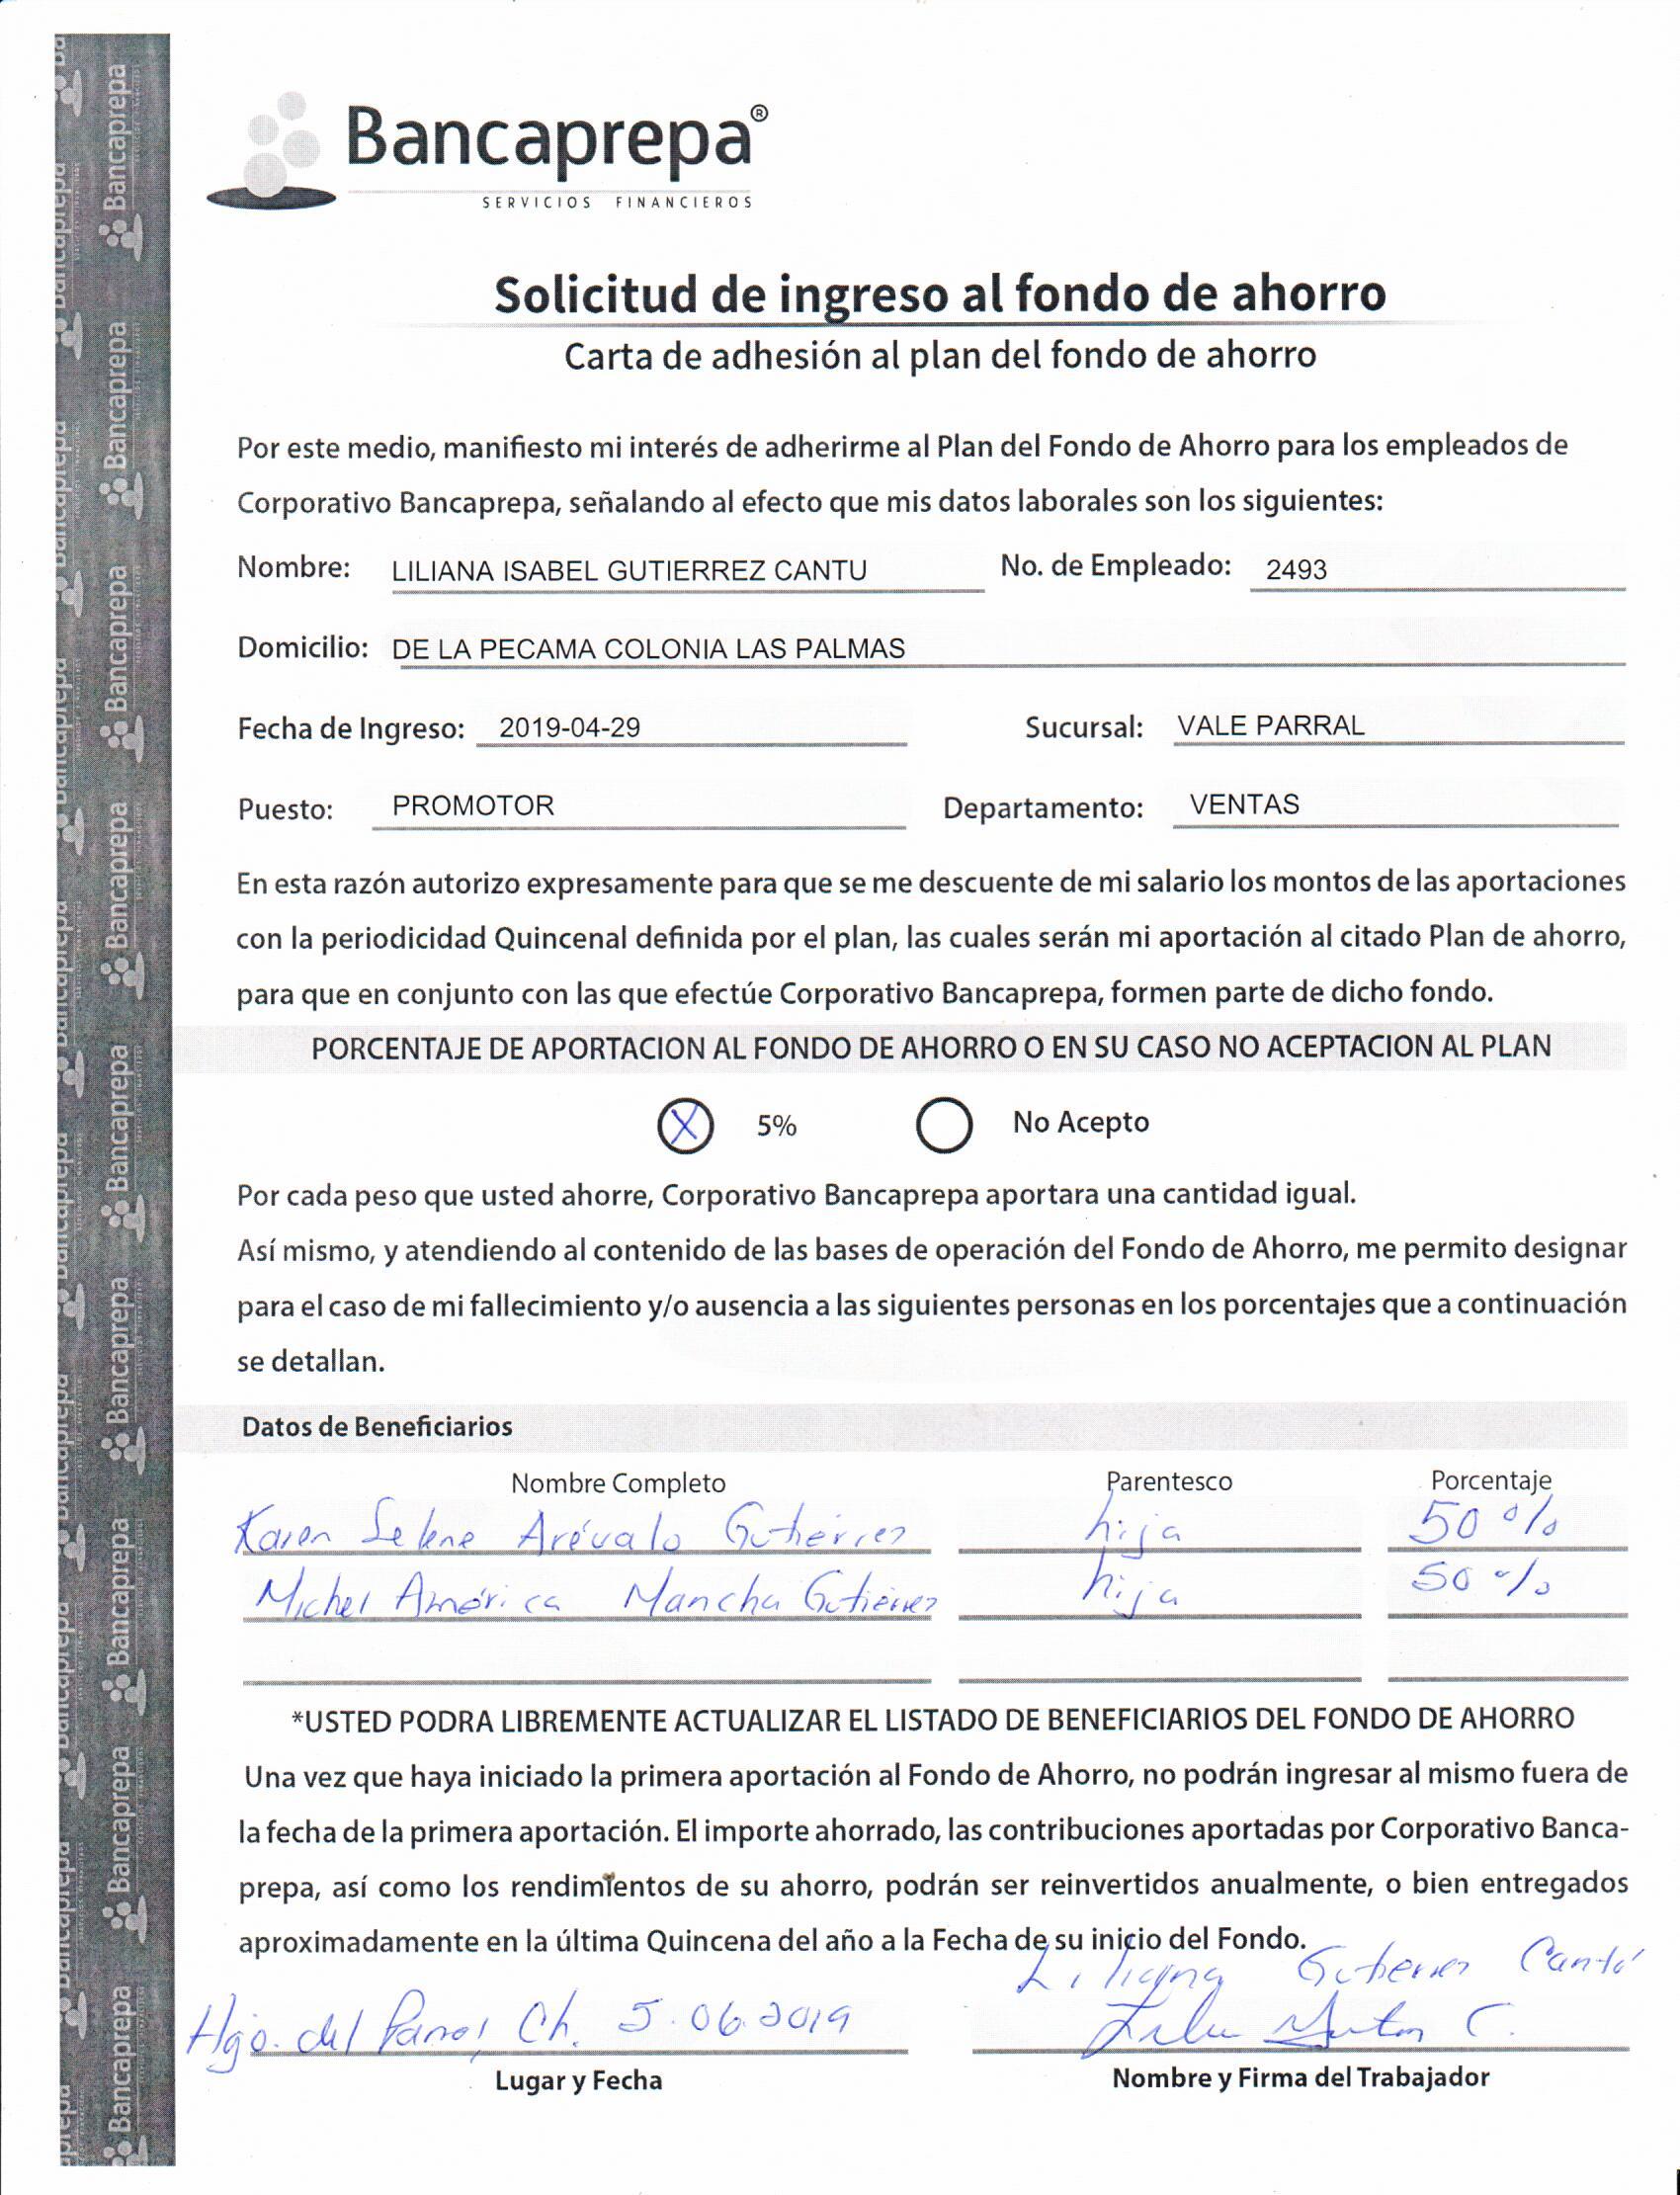 Bancaprepa®
SERVICIOS FINANCIEROS
Solicitud de ingreso al fondo de ahorro
Carta de adhesión al plan del fondo de ahorro
Por este medio, manifiesto mi interés de adherirme al Plan del Fondo de Ahorro para los empleados de
Corporativo Bancaprepa, señalando al efecto que mis datos laborales son los siguientes:
Nombre: LILIANA ISABEL GUTIERREZ CANTU No. de Empleado: 2493
Domicilio: DE LA PECAMA COLONIA LAS PALMAS
Fecha de Ingreso: 2019-04-29 Sucursal: VALE PARRAL
Puesto: PROMOTOR Departamento: VENTAS
En esta razón autorizo expresamente para que se me descuente de mi salario los montos de las aportaciones
con la periodicidad Quincenal definida por el plan, las cuales serán mi aportación al citado Plan de ahorro,
para que en conjunto con las que efectúe Corporativo Bancaprepa, formen parte de dicho fondo.
PORCENTAJE DE APORTACION AL FONDO DE AHORRO O EN SU CASO NO ACEPTACION AL PLAN
X 5% No Acepto
Por cada peso que usted ahorre, Corporativo Bancaprepa aportara una cantidad igual.
Así mismo, y atendiendo al contenido de las bases de operación del Fondo de Ahorro, me permito designar
para el caso de mi fallecimiento y/o ausencia a las siguientes personas en los porcentajes que a continuación
se detallan.
Datos de Beneficiarios
Nombre Completo Parentesco Porcentaje
Karen Selene Arévalo Gutiérrez hija 50%
Michel América Mancha Gutiérrez hija 50%
*USTED PODRA LIBREMENTE ACTUALIZAR EL LISTADO DE BENEFICIARIOS DEL FONDO DE AHORRO
Una vez que haya iniciado la primera aportación al Fondo de Ahorro, no podrán ingresar al mismo fuera de
la fecha de la primera aportación. El importe ahorrado, las contribuciones aportadas por Corporativo Banca-
prepa, así como los rendimientos de su ahorro, podrán ser reinvertidos anualmente, o bien entregados
aproximadamente en la última Quincena del año a la Fecha de su inicio del Fondo.
Liliana Gutierrez Cantú
Hgo. del Parral, Ch. 5.06.2019
Lugar y Fecha Nombre y Firma del Trabajador